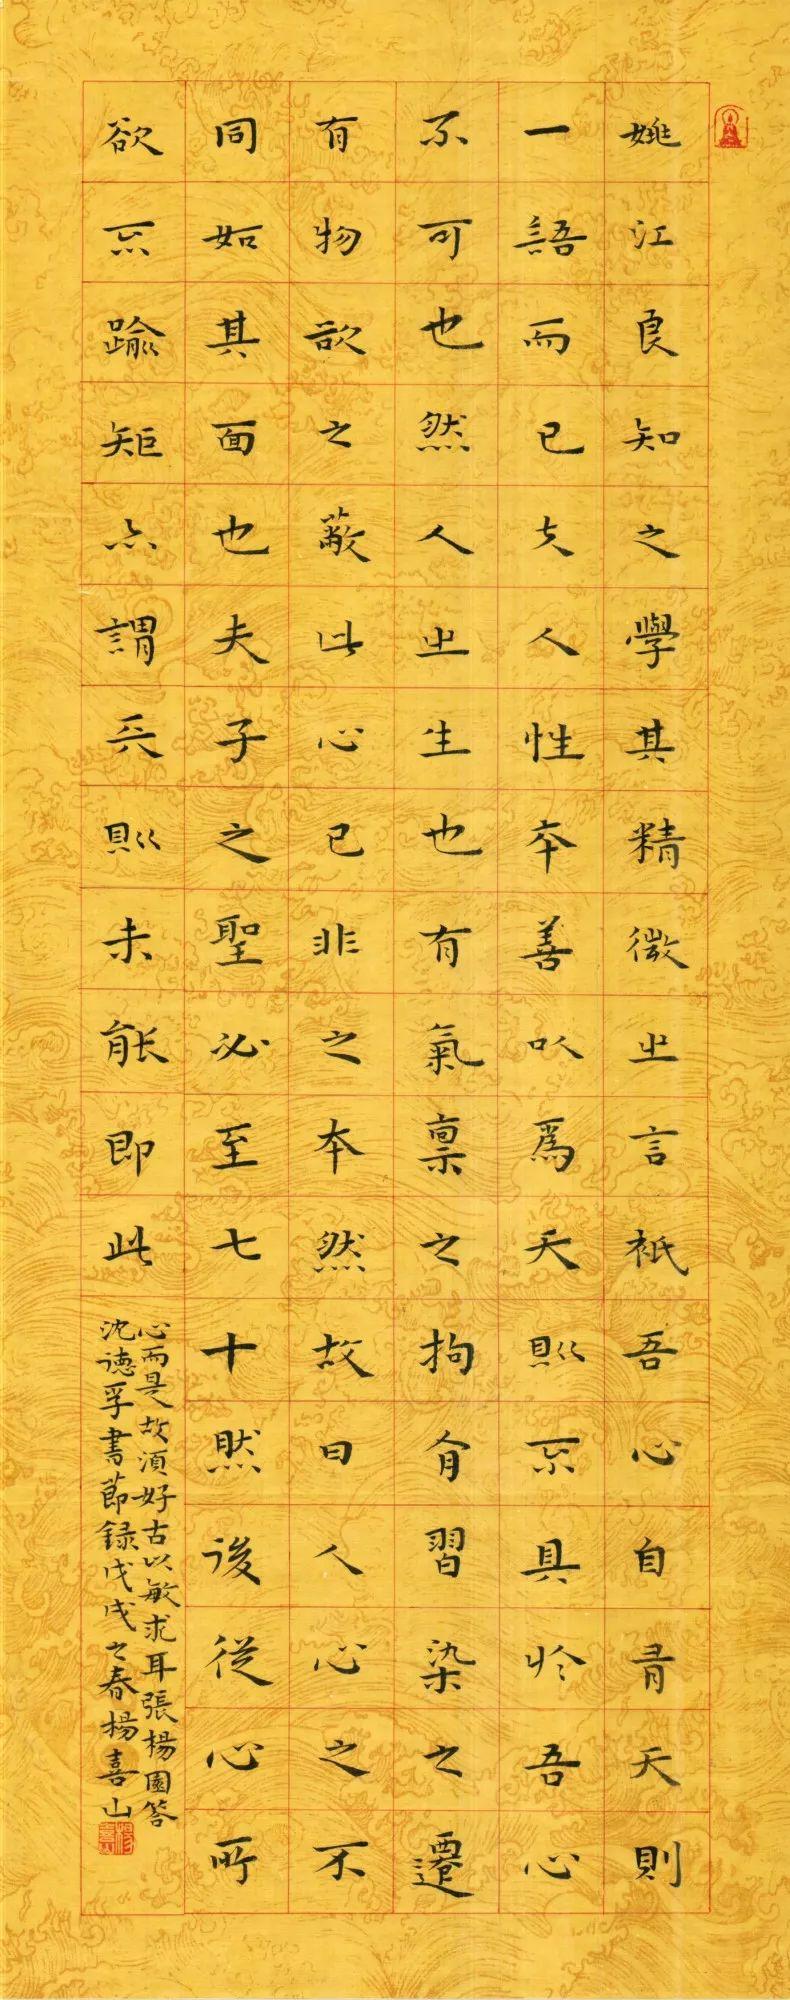 姚江良知之學其精微之言祇吾心自有天則
一語而已夫人性本善以爲天則不具於吾心
不可也然人之生也有氣稟之拘有習染之遷
有物欲之蔽此心已非之本然故曰人心之不
同如其面也夫子之聖必至七十然後從心所
欲不踰矩亦謂天則未能即此
心而是故須好古以敏求耳張楊園答
沈德孚書節録戊戌之春楊喜山